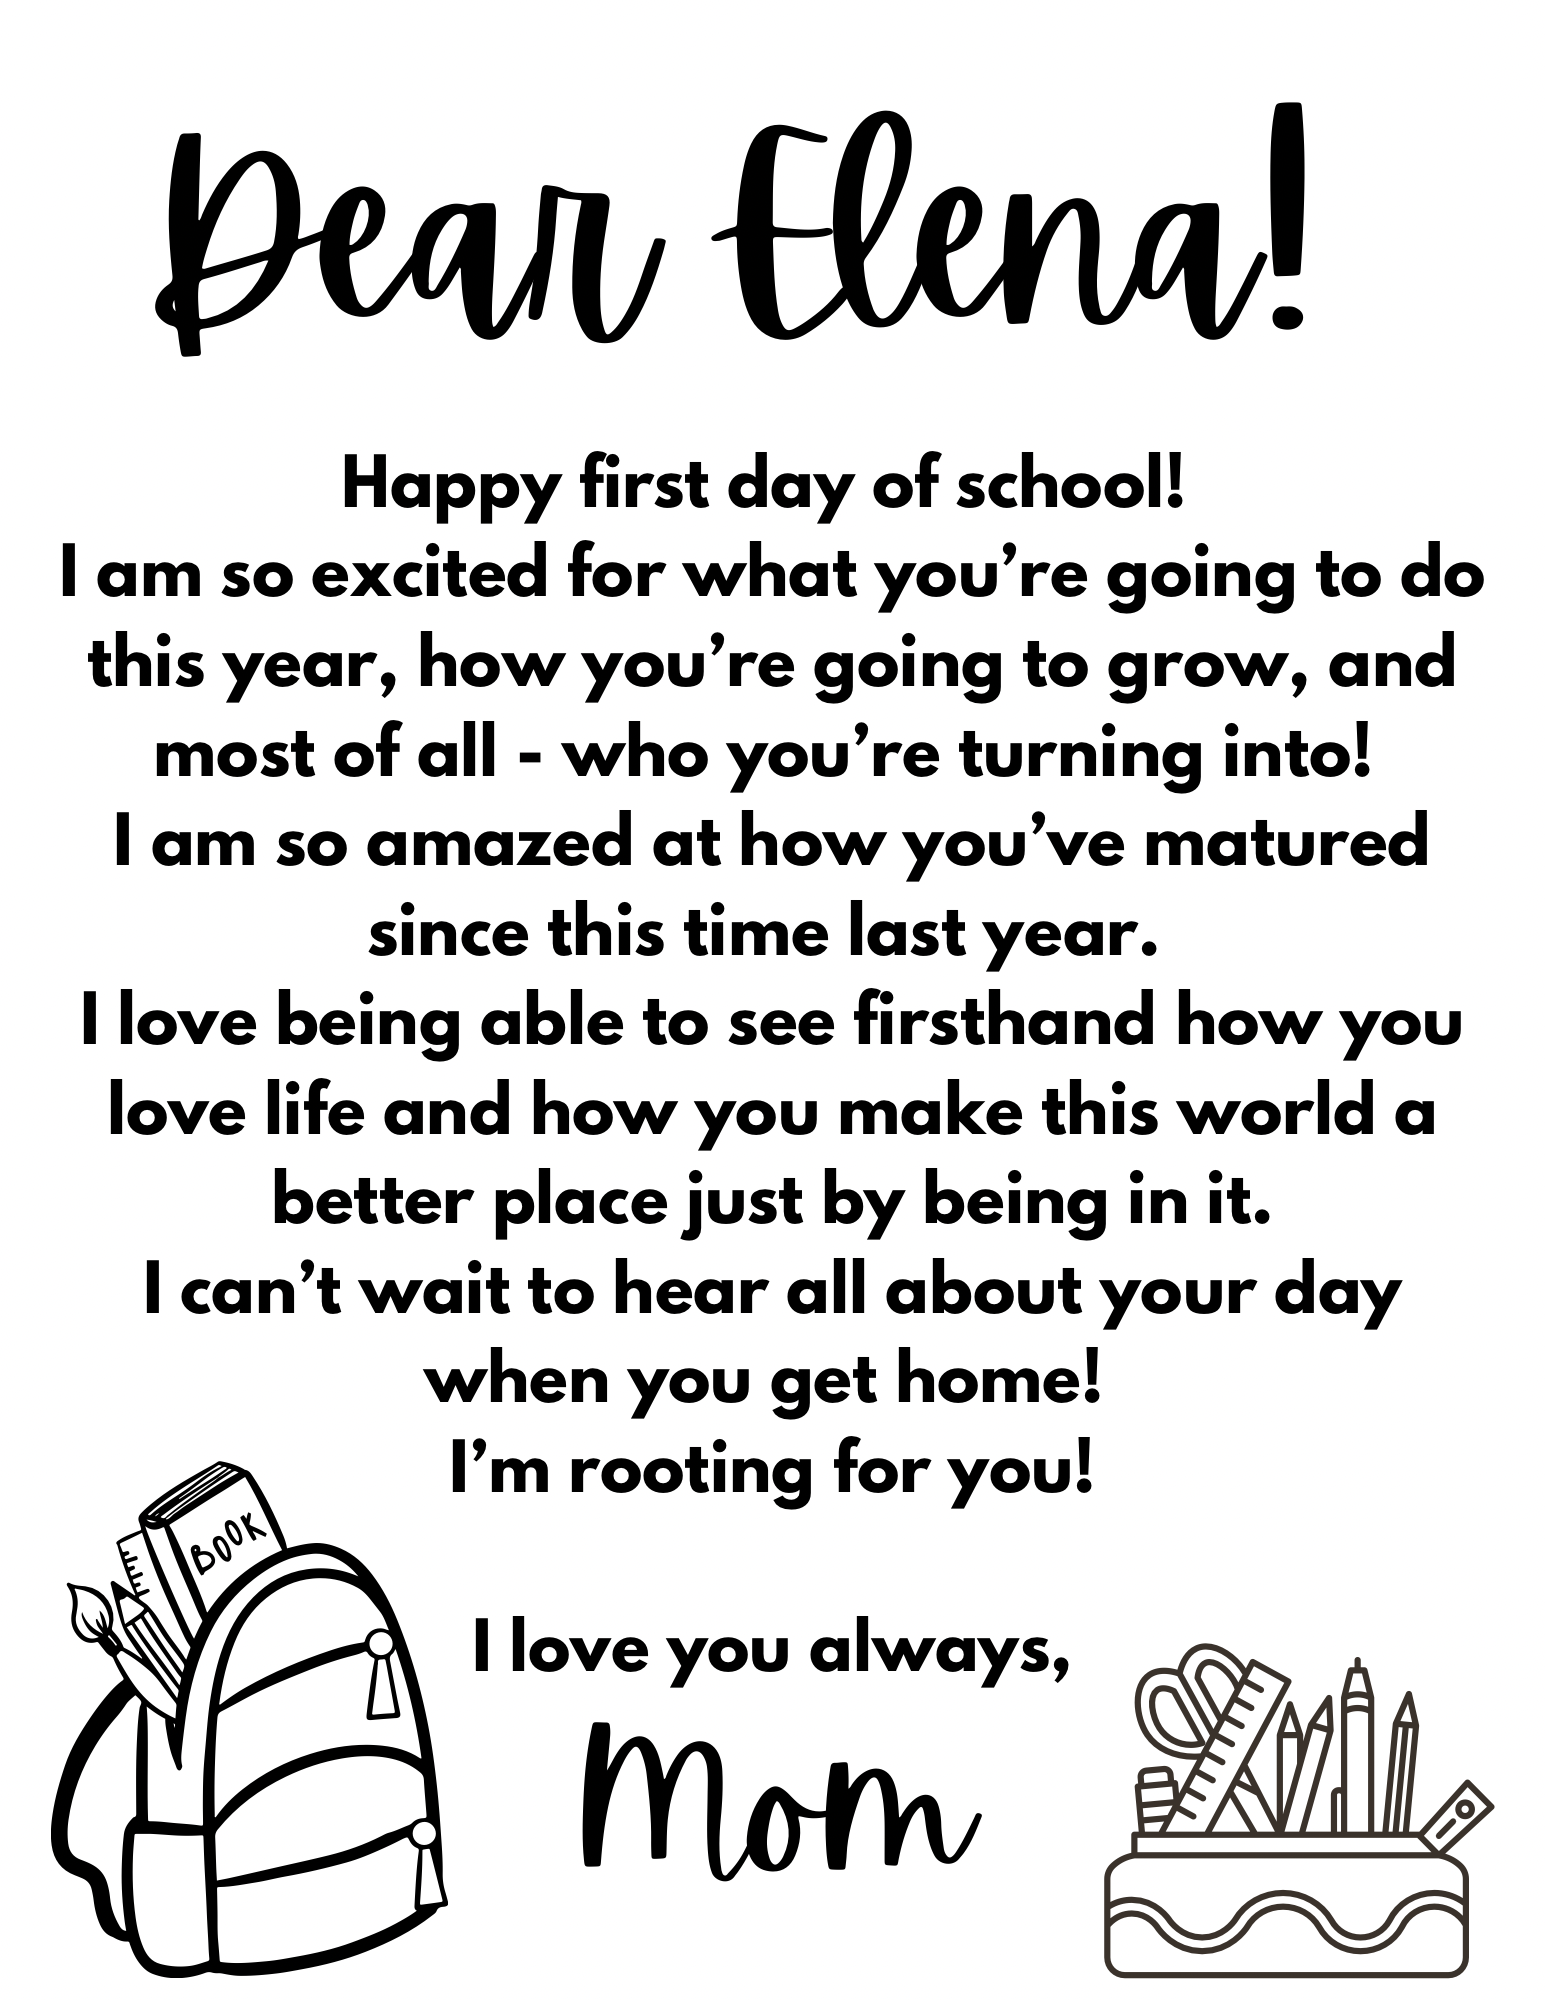 Dear Elena!
Happy first day of school!
I am so excited for what you’re going to do
this year, how you’re going to grow, and
most of all - who you’re turning into!
I am so amazed at how you’ve matured
since this time last year.
I love being able to see firsthand how you
love life and how you make this world a
better place just by being in it.
I can’t wait to hear all about your day
when you get home!
I’m rooting for you!
BOOK
I love you always,
Mom